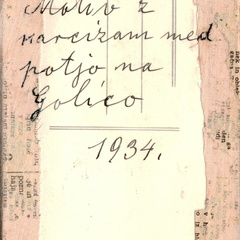 Motiv z
narcizam med
potjo na
Golico
1934.